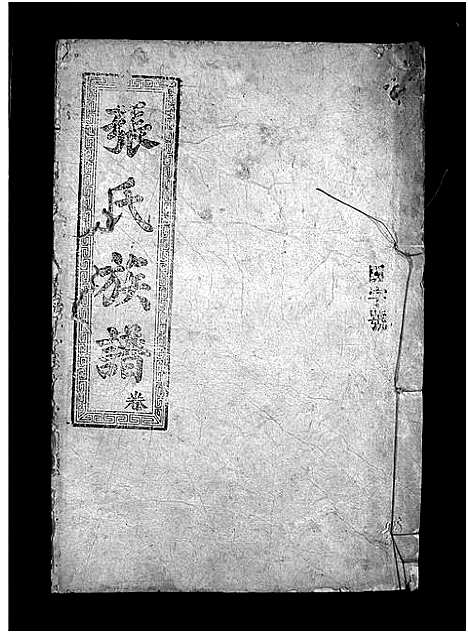 張氏族譜
卷
字號